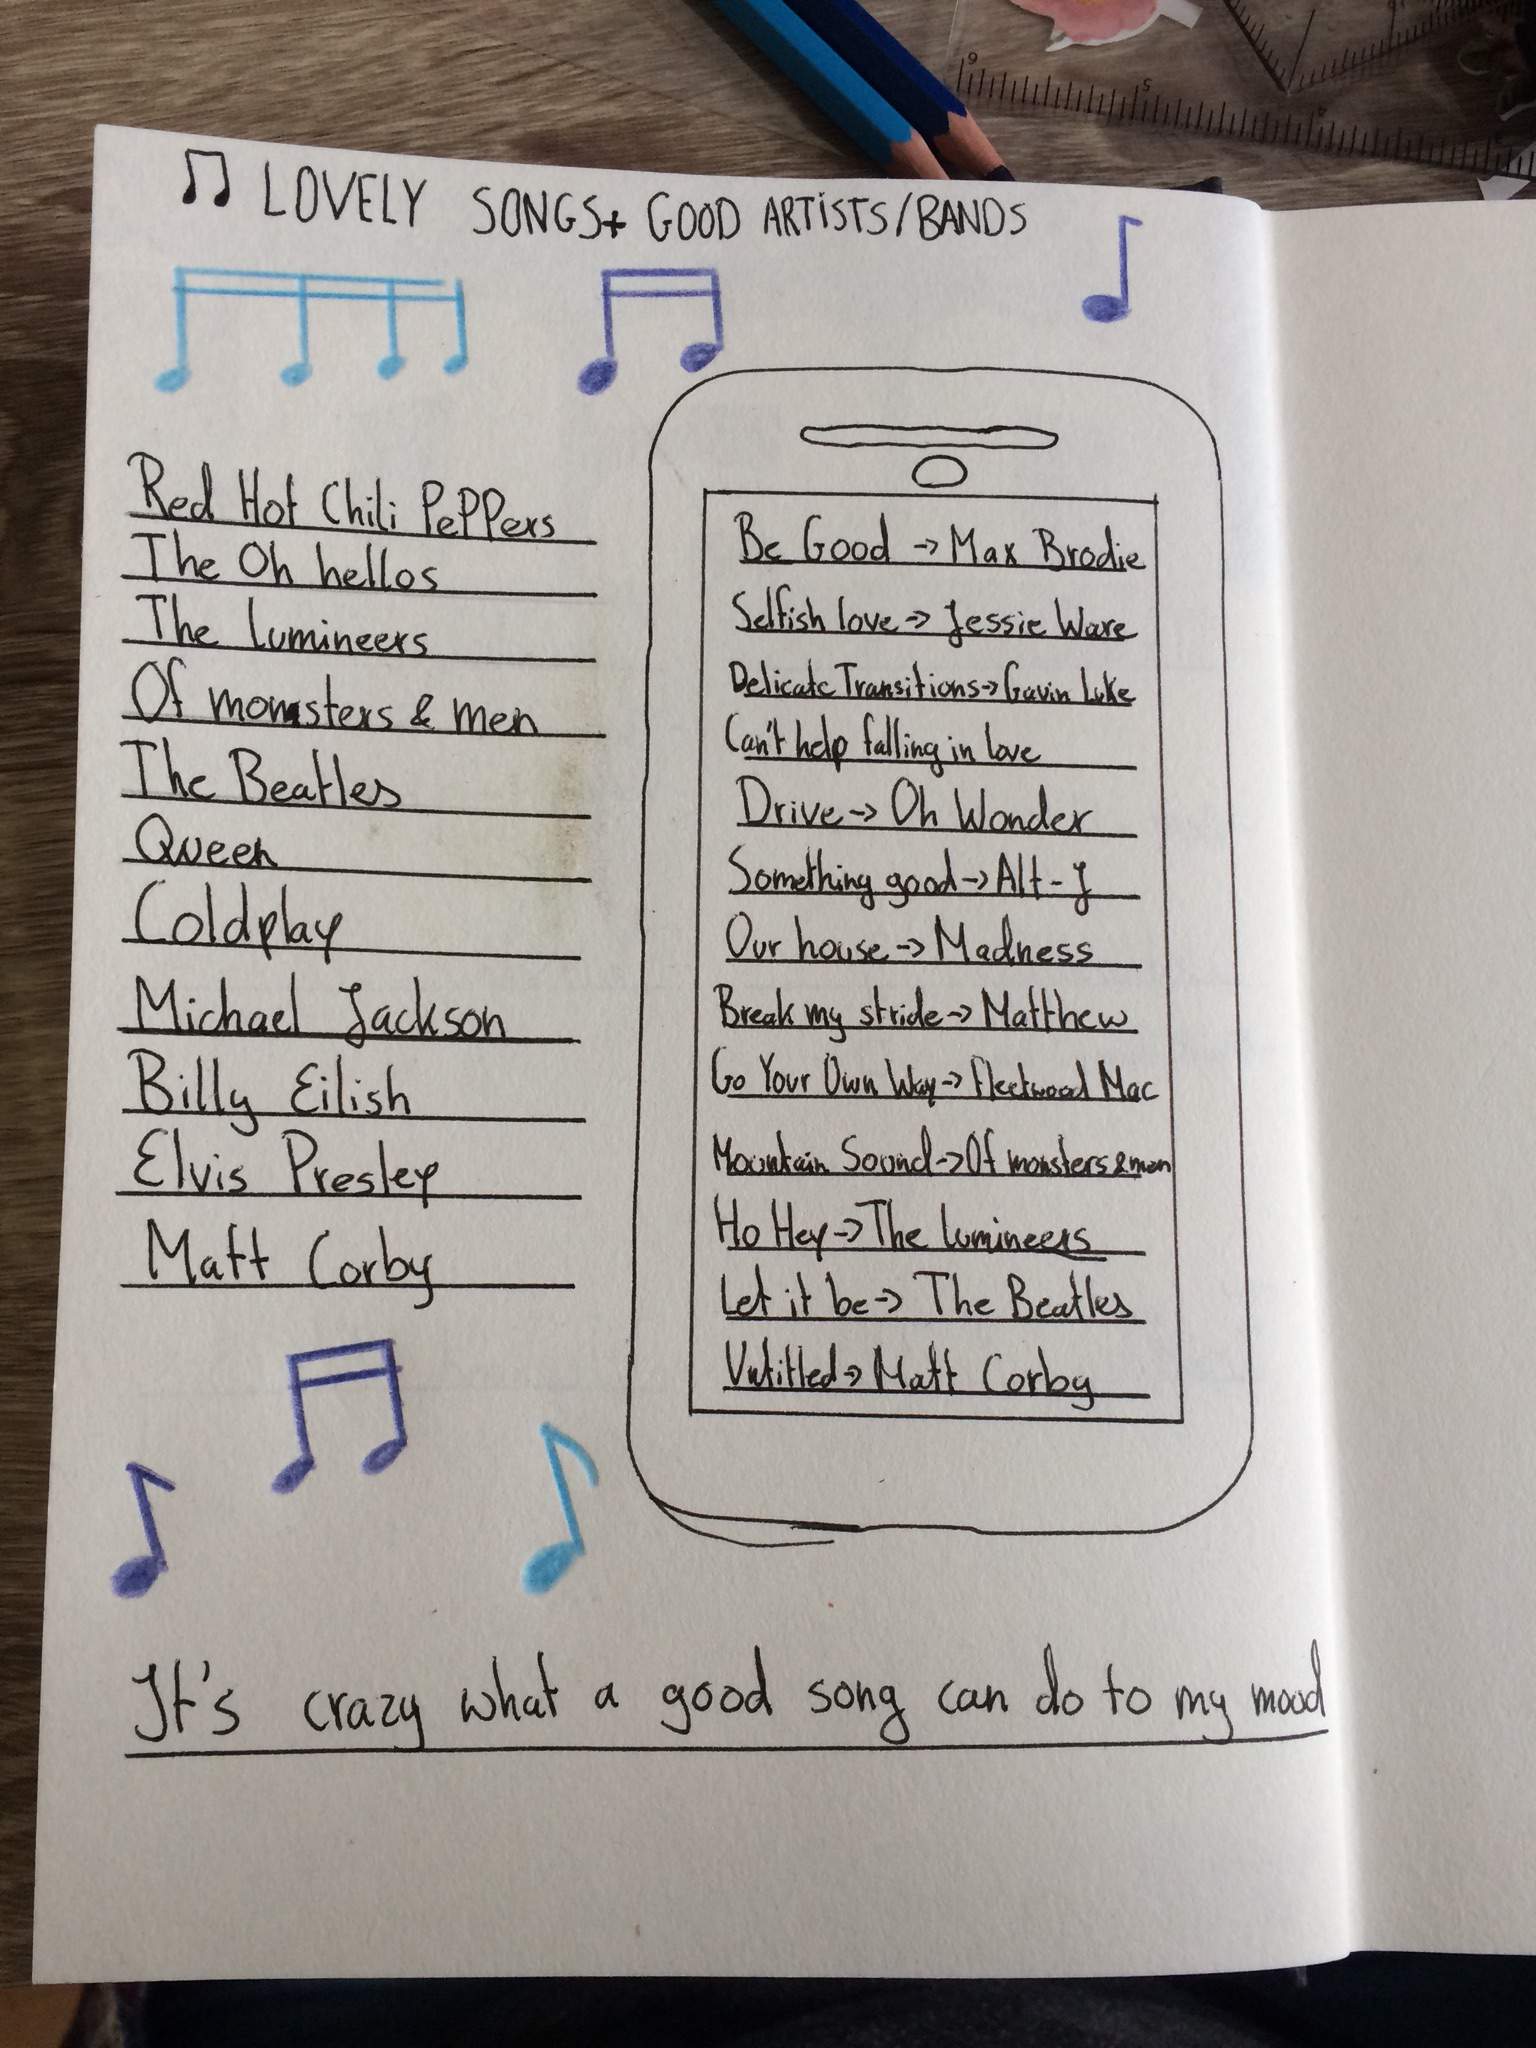 LOVELY SONGS+ GOOD ARTISTS/BANDS
Red Hot Chili PePPers
The Oh hellos
The lumineers
Of monsters & men
The Beatles
Queen
Coldplay
Michael Jackson
Billy Eilish
Elvis Presley
Matt Corby
Be Good -> Max Brodie
Selfish love -> Jessie Ware
Delicate Transitions -> Gavin Luke
Can't help falling in love
Drive -> Oh Wonder
Something good -> Alt-J
Our house -> Madness
Break my stride -> Matthew
Go Your Own Way -> Fleetwood Mac
Mountain Sound -> Of monsters & men
Ho Hey -> The lumineers
Let it be -> The Beatles
Untitled -> Matt Corby
It's crazy what a good song can do to my mood
6 5 4